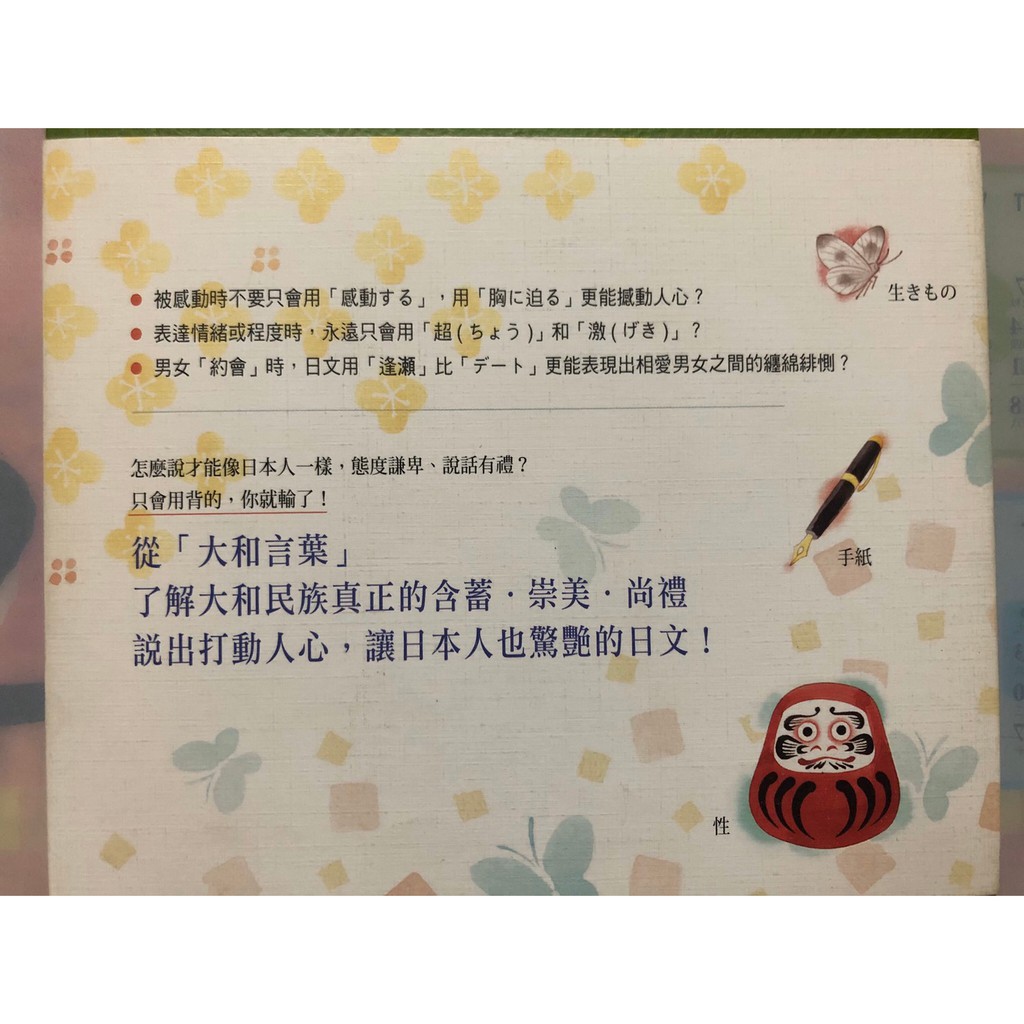 ● 被感動時不要只會用「感動する」，用「胸に迫る」更能撼動人心？
● 表達情緒或程度時，永遠只會用「超(ちょう)」和「激(げき)」？
● 男女「約會」時，日文用「逢瀬」比「デート」更能表現出相愛男女之間的纏綿緋惻？
怎麼說才能像日本人一樣，態度謙卑、說話有禮？
只會用背的，你就輸了！
從「大和言葉」
了解大和民族真正的含蓄．崇美．尚禮
說出打動人心，讓日本人也驚艷的日文！
生きもの
手紙
性